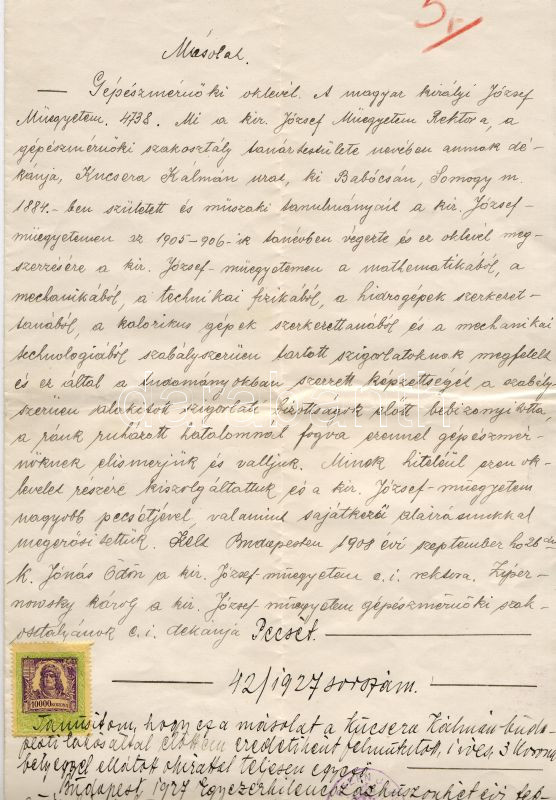 5,
Másolat.
— Gépészmérnöki oklevél. A magyar királyi József
Müegyetem. 4738. Mi a kir. József Müegyetem Rektora, a
gépészmérnöki szakosztály tanártestülete nevében annak dé-
kánja, Kucsera Kálmán urat, ki Babócsán, Somogy m.
1884.-ben született és müszaki tanulmányait a kir. József-
müegyetemen az 1905-906-ik tanévben végezte és ez oklevél meg-
szerzésére a kir. József-müegyetemen a mathematikából, a
mechanikából, a technikai fizikából, a hidrogépek szerkezet-
tanából, a kalorikus gépek szerkezettanából és a mechanikai
technologiából szabályszerüen tartott szigorlatoknak megfelelt
és ez által a tudományokban szerzett képzettségét a szabály-
szerüen alakított szigorlati bizottságok előtt bebizonyította,
a ránk ruházott hatalomnál fogva ezennel gépészmér-
nöknek elismerjük és valljuk. Minek hiteléül ezen ok-
levelet részére kiszolgáltattuk és a kir. József-müegyetem
nagyobb pecsétjével, valamint sajátkezü aláirásunkkal
megerősitettük. Kelt Budapesten 1908 évi szeptember hó 26-án
K. Jónás Ödön a kir. József müegyetem e.i. rektora. Ziper-
nowsky Károly a kir. József müegyetem gépészmérnöki szak-
osztályának e.i. dékánja Pecsét.
42/1927 sorszám.
10000 KORONA
Tanusitom, hogy ez a másolat a Kucsera Kálmán buda-
pesti lakos által előttem eredetiként felmutatott, 1 ives, 3 korona
bélyeggel ellátott okirattal teljesen egyező.
— Budapest, 1927 Egyezerkilencszázhuszonhét évi feb-
darabanth